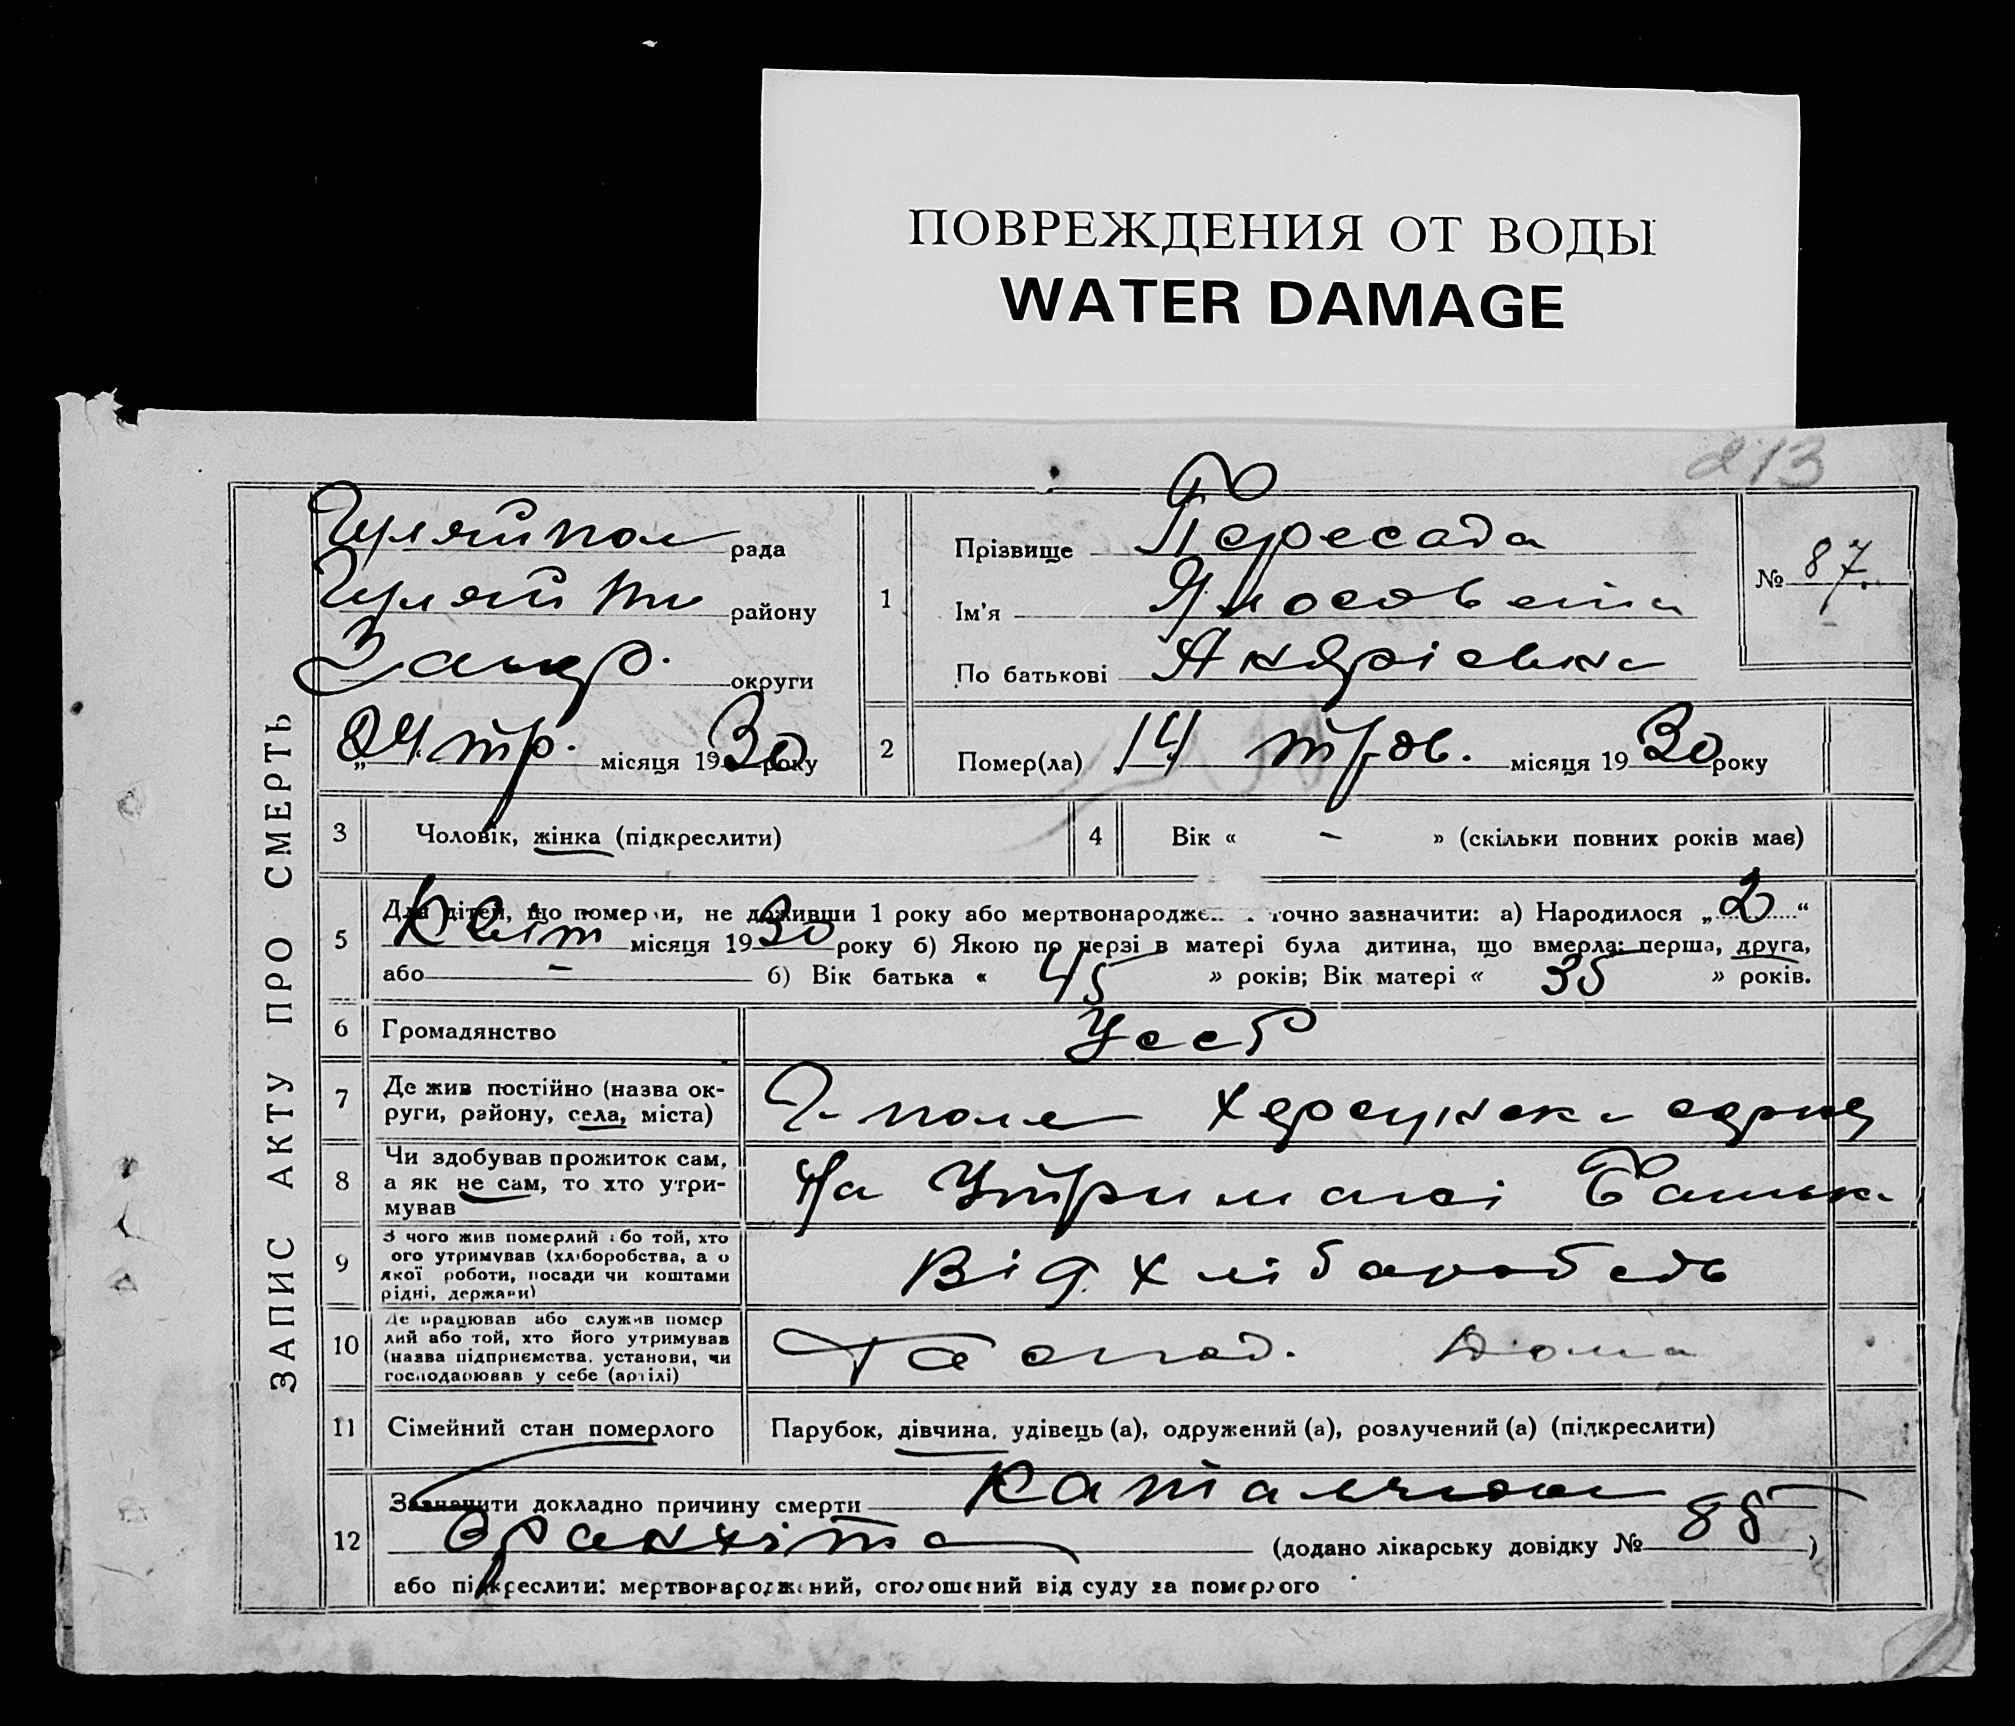 ПОВРЕЖДЕНИЯ ОТ ВОДЫ
WATER DAMAGE
213
ЗАПИС АКТУ ПРО СМЕРТЬ
Гуляйпол рада
Гуляйп району
Запор. округи
„24 тр. місяця 1930 року
1
Прізвище Пересада
Ім'я
По батькові Андріевна
№ 87.
2 Помер(ла) 14 трав. місяця 1930 року
3 Чоловік, жінка (підкреслити)
4 Вік « – » (скільки повних років має)
5 Для дітей, що померли, не доживши 1 року або мертвонароджен. точно зазначити: а) Народилося „2“
Квіт місяця 1930 року б) Якою по черзі в матері була дитина, що вмерла: перша, друга,
або – б) Вік батька « 45 » років; Вік матері « 35 » років.
6 Громадянство УССР
7 Де жив постійно (назва ок-
руги, району, села, міста)
Г-поле Херсунська
8 Чи здобував прожиток сам,
а як не сам, то хто утри-
мував
На Утриманні Батьк.
9 З чого жив померлий або той, хто
ого утримував (хліборобства, а о
якої роботи, посади чи коштами
рідні, держави)
Від хліборобства
10 Де працював або служив помер
лий або той, хто його утримував
(назва підприємства, установи, чи
господарював у себе (артілі)
Господ. Дома
11 Сімейний стан померлого Парубок, дівчина, удівець (а), одружений (а), розлучений (а) (підкреслити)
12 Зазначити докладно причину смерти
бранхіта (додано лікарську довідку № 85)
або підкреслити: мертвонароджений, оголошений від суду за померлого